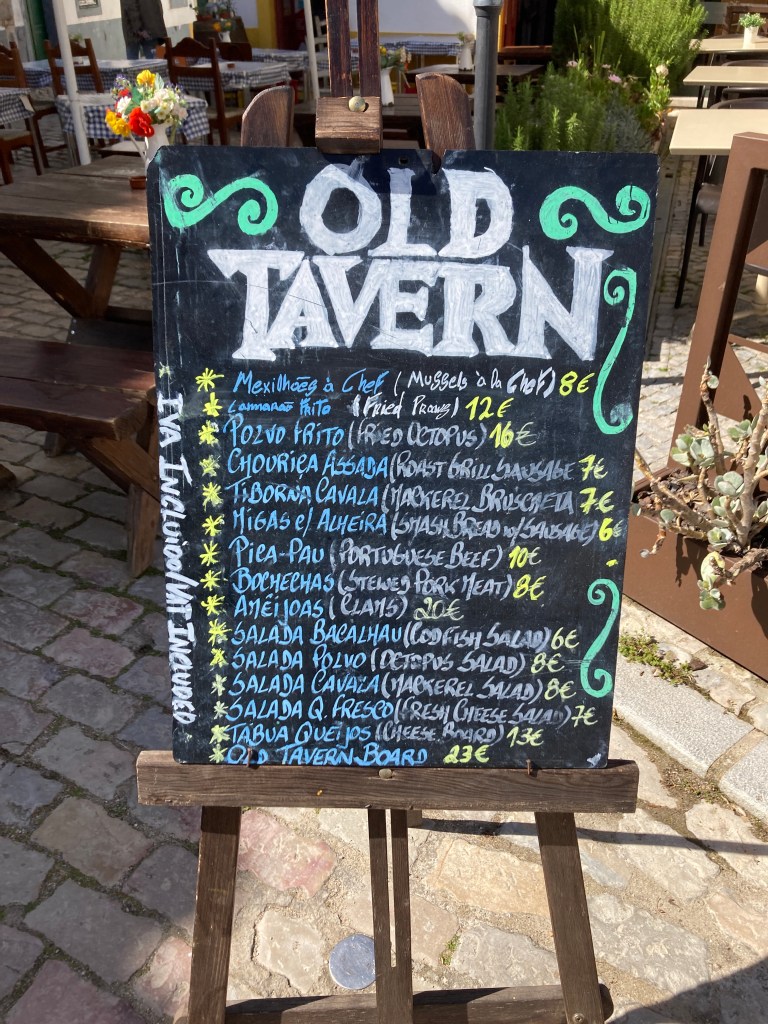 OLD
TAVERN
Mexilhões à Chef (Mussels à la Chef) 8€
Cammarão Frito (Fried Prawns) 12€
Polvo Frito (Fried Octopus) 16€
Chouriça Assada (Roast Grill Sausage 7€
Tiborna Cavala (Mackerel Bruscheta 7€
Migas c/ Alheira (Smash Bread w/ Sausage) 6€
Pica-Pau (Portuguese Beef) 10€
Bochechas (Stewed Pork Meat) 8€
Amêijoas (Clams) 20€
Salada Bacalhau (Codfish Salad) 6€
Salada Polvo (Octopus Salad) 8€
Salada Cavala (Mackerel Salad) 8€
Salada Q. Fresco (Fresh Cheese Salad) 7€
Tábua Queijos (Cheese Board) 13€
Old Tavern Board 23€
IVA Incluido/VAT Included